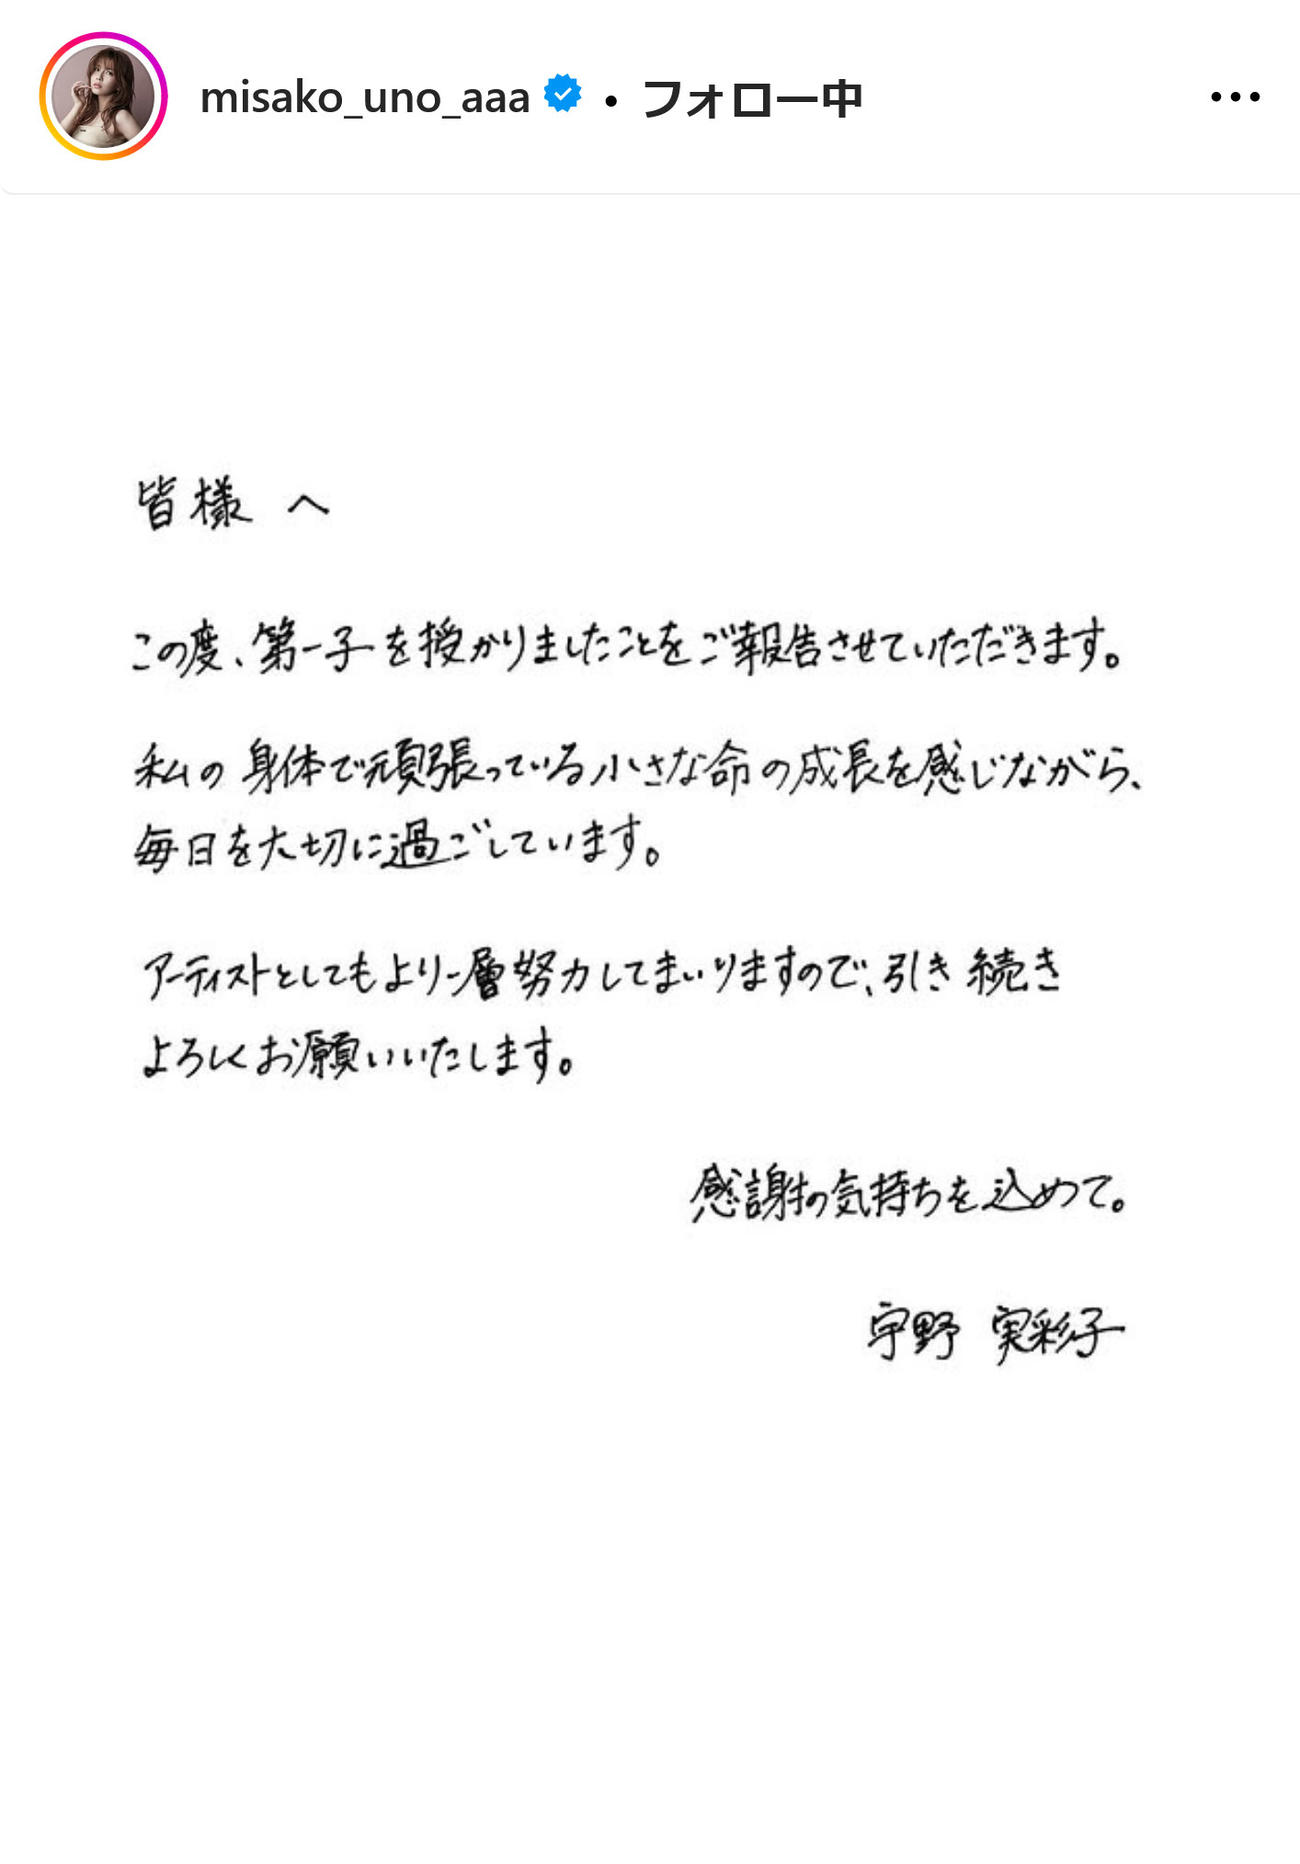 misako_uno_aaa • フォロー中
皆様 へ
この度、第一子を授かりましたことをご報告させていただきます。
私の身体で頑張っている小さな命の成長を感じながら、
毎日を大切に過ごしています。
アーティストとしてもより一層努力してまいりますので、引き続き
よろしくお願いいたします。
感謝の気持ちを込めて。
宇野 実彩子